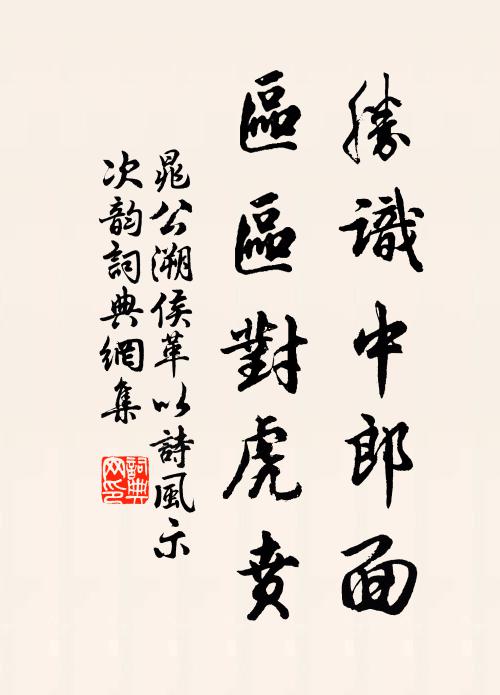 勝識中郎面
區區對虎賁
晁公溯侯革以詩風示
次韵詞典網集
詞典
网印